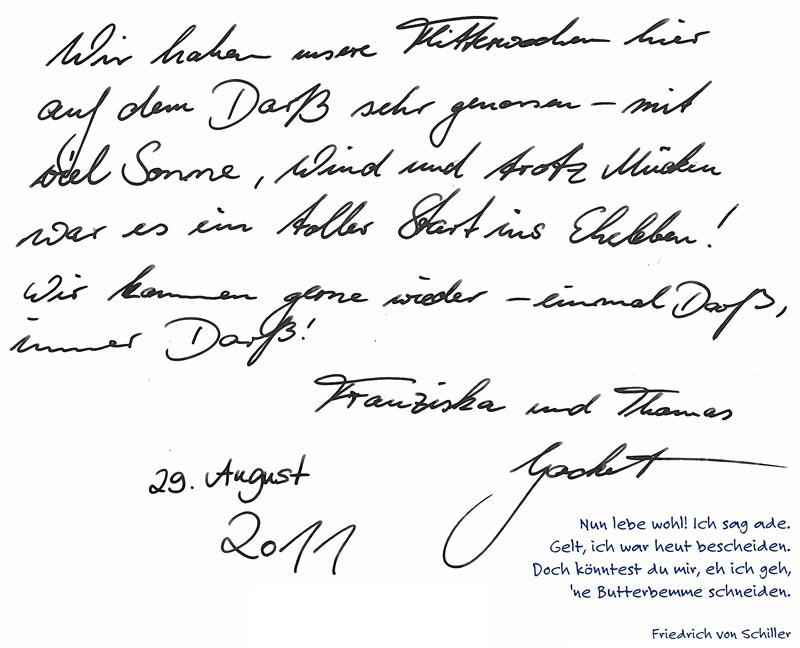 Wir haben unsere Flitterwochen hier
auf dem Darß sehr genossen – mit
viel Sonne, Wind und trotz Mücken
war es ein toller Start ins Eheleben!
Wir kommen gerne wieder – einmal Darß,
immer Darß!
Franziska und Thomas
29. August
2011
Nun lebe wohl! Ich sag ade.
Gelt, ich war heut bescheiden.
Doch könntest du mir, eh ich geh,
'ne Butterbemme schneiden.
Friedrich von Schiller